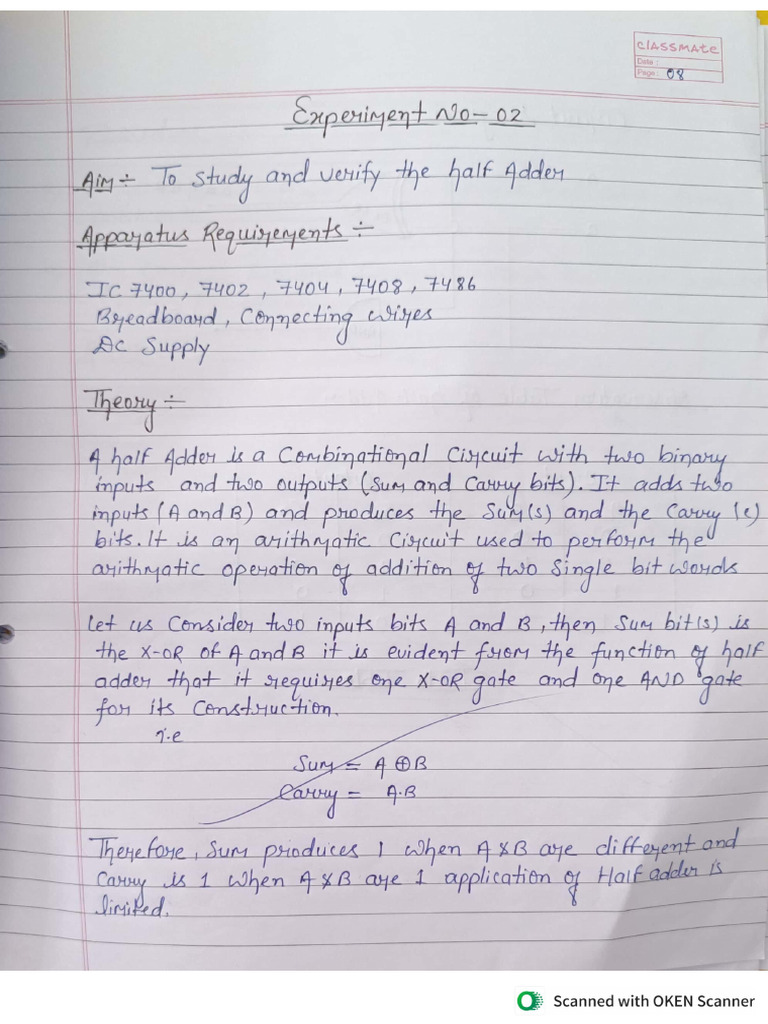 classmate
Date :
Page : 08
Experiment No-02
Aim ÷ To study and verify the half Adder
Apparatus Requirements ÷
IC 7400, 7402, 7404, 7408, 7486
Breadboard, Connecting wires
DC Supply
Theory ÷
A half Adder is a Combinational Circuit with two binary
inputs and two outputs (Sum and Carry bits). It adds two
inputs (A and B) and produces the Sum(s) and the Carry (c)
bits. It is an arithmatic Circuit used to perform the
arithmatic operation of addition of two Single bit words
Let us Consider two inputs bits A and B, then Sum bit(s) is
the X-OR of A and B it is evident from the function of half
adder that it requires one X-OR gate and one AND gate
for its Construction.
i.e
Sum = A ⊕ B
Carry = A.B
Therefore, Sum produces 1 when A & B are different and
Carry is 1 when A & B are 1 application of Half adder is
limited.
Scanned with OKEN Scanner